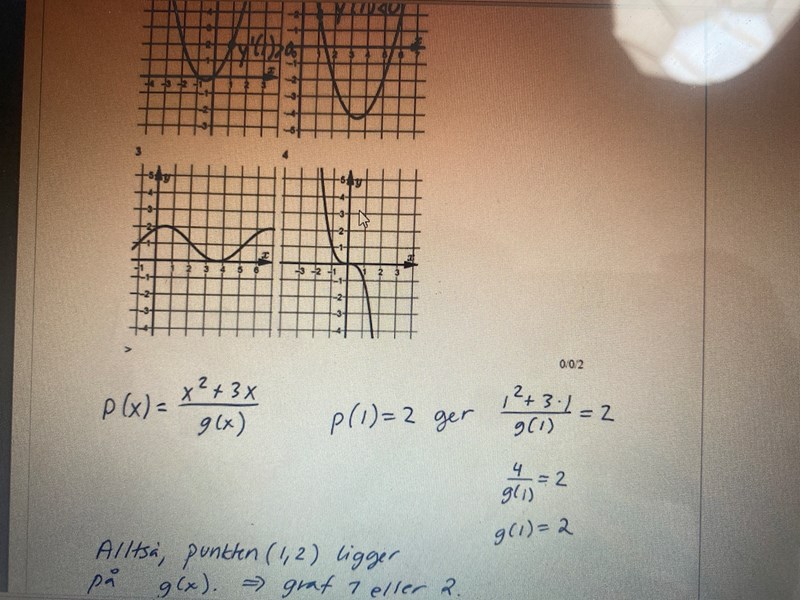 y'(1)>0
3
4
0/0/2
p(x) = (x²+3x)/g(x)
p(1)=2 ger (1²+3·1)/g(1) = 2
4/g(1) = 2
g(1)=2
Alltså, punkten (1,2) ligger
på g(x). ⇒ graf 1 eller 2.